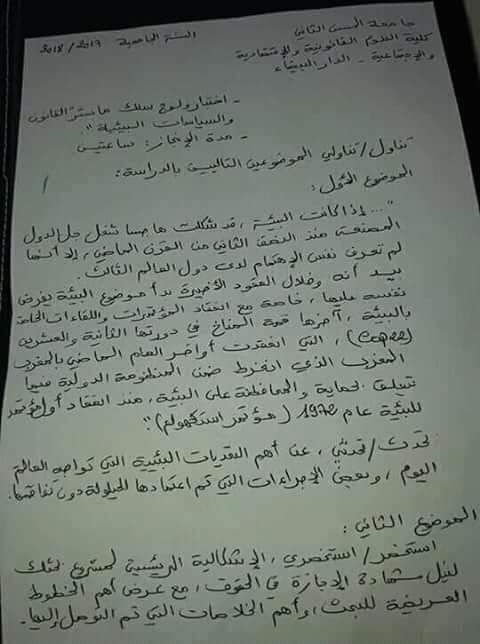 جامعة الحسن الثاني
السنة الجامعية 2017/2018
كلية العلوم القانونية والاقتصادية
والاجتماعية - الدار البيضاء
- اختبار ولوج سلك ماستر القانون
والسياسات البيئية".
- مدة الإنجاز: ساعتين
تناول/تناولي الموضوعين التاليين بالدراسة:
الموضوع الأول:
"... إذا كانت البيئة، قد شكلت هاجسا شغل جل الدول
المصنعة منذ النصف الثاني من القرن الماضي، إلا أنها
لم تعرف نفس الاهتمام لدى دول العالم الثالث.
بيد أنه وخلال العقود الأخيرة بدأ موضوع البيئة يفرض
نفسه عليها، خاصة مع انعقاد المؤتمرات واللقاءات الخاصة
بالبيئة، آخرها قمة المناخ في دورتها الثانية والعشرين
(cop22)، التي انعقدت أواخر العام الماضي بالمغرب
المغرب الذي انخرط ضمن المنظومة الدولية فيما
يتعلق بحماية والمحافظة على البيئة، منذ انعقاد أول مؤتمر
للبيئة عام 1972 (مؤتمر استكهولم)".
تحدث/تحدثي، عن أهم التحديات البيئية التي تواجه العالم
اليوم، وبعض الإجراءات التي تم اعتمادها للحيلولة دون تفاقمها.
الموضوع الثاني:
استحضر/استحضري، الإشكالية الرئيسية لمشروع بحثك
لنيل شهادة الإجازة في الحقوق، مع عرض أهم الخطوط
العريضة للبحث، وأهم الخلاصات التي تم التوصل إليها.